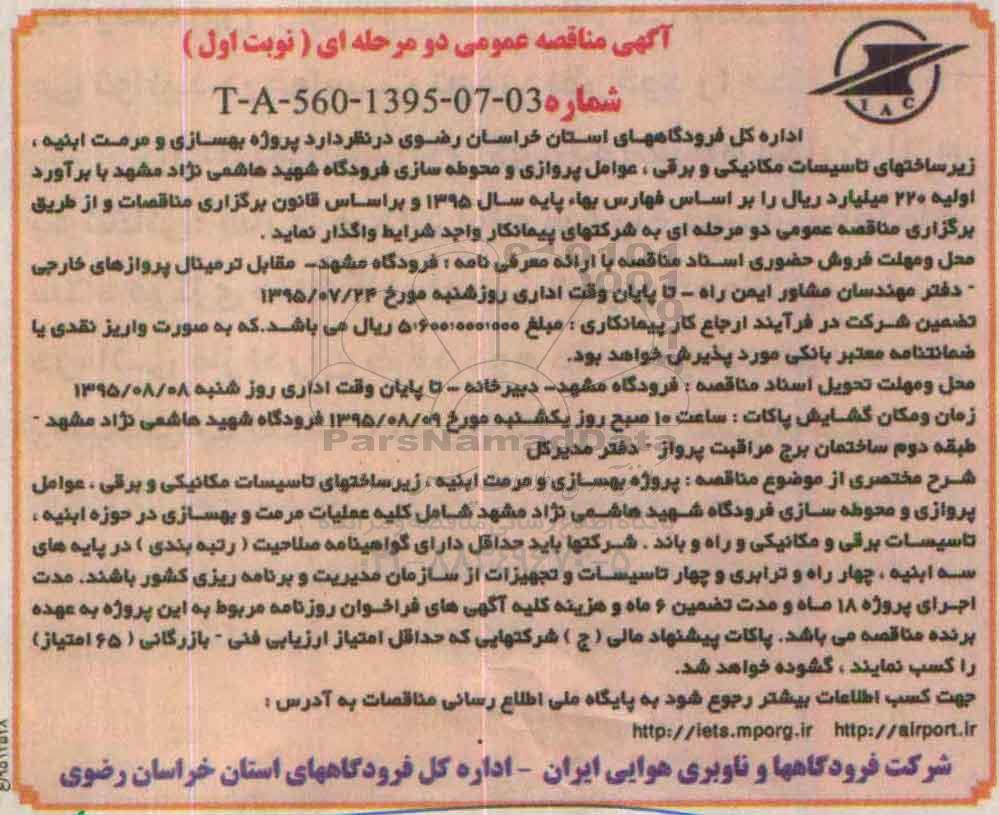 آگهی مناقصه عمومی دو مرحله ای ( نوبت اول )
شماره T-A-560-1395-07-03
IAC
اداره کل فرودگاههای استان خراسان رضوی درنظردارد پروژه بهسازی و مرمت ابنیه ،
زیرساختهای تاسیسات مکانیکی و برقی ، عوامل پروازی و محوطه سازی فرودگاه شهید هاشمی نژاد مشهد با برآورد
اولیه ۲۲۰ میلیارد ریال را بر اساس فهارس بهاء پایه سال ۱۳۹۵ و براساس قانون برگزاری مناقصات و از طریق
برگزاری مناقصه عمومی دو مرحله ای به شرکتهای پیمانکار واجد شرایط واگذار نماید .
محل ومهلت فروش حضوری اسناد مناقصه با ارائه معرفی نامه : فرودگاه مشهد– مقابل ترمینال پروازهای خارجی
- دفتر مهندسان مشاور ایمن راه – تا پایان وقت اداری روزشنبه مورخ ۱۳۹۵/۰۷/۲۴
تضمین شرکت در فرآیند ارجاع کار پیمانکاری : مبلغ ۵،۶۰۰،۰۰۰،۰۰۰ ریال می باشد.که به صورت واریز نقدی یا
ضمانتنامه معتبر بانکی مورد پذیرش خواهد بود.
محل ومهلت تحویل اسناد مناقصه : فرودگاه مشهد– دبیرخانه – تا پایان وقت اداری روز شنبه ۱۳۹۵/۰۸/۰۸
زمان ومکان گشایش پاکات : ساعت ۱۰ صبح روز یکشنبه مورخ ۱۳۹۵/۰۸/۰۹ فرودگاه شهید هاشمی نژاد مشهد -
طبقه دوم ساختمان برج مراقبت پرواز - دفتر مدیرکل
ParsNamadData
شرح مختصری از موضوع مناقصه : پروژه بهسازی و مرمت ابنیه ، زیرساختهای تاسیسات مکانیکی و برقی ، عوامل
پروازی و محوطه سازی فرودگاه شهید هاشمی نژاد مشهد شامل کلیه عملیات مرمت و بهسازی در حوزه ابنیه ،
تاسیسات برقی و مکانیکی و راه و باند . شرکتها باید حداقل دارای گواهینامه صلاحیت ( رتبه بندی ) در پایه های
سه ابنیه ، چهار راه و ترابری و چهار تاسیسات و تجهیزات از سازمان مدیریت و برنامه ریزی کشور باشند. مدت
اجرای پروژه ۱۸ ماه و مدت تضمین ۶ ماه و هزینه کلیه آگهی های فراخوان روزنامه مربوط به این پروژه به عهده
برنده مناقصه می باشد. پاکات پیشنهاد مالی ( ج ) شرکتهایی که حداقل امتیاز ارزیابی فنی - بازرگانی ( ۶۵ امتیاز)
را کسب نمایند ، گشوده خواهد شد.
جهت کسب اطلاعات بیشتر رجوع شود به پایگاه ملی اطلاع رسانی مناقصات به آدرس :
http://iets.mporg.ir http://airport.ir
شرکت فرودگاهها و ناوبری هوایی ایران - اداره کل فرودگاههای استان خراسان رضوی